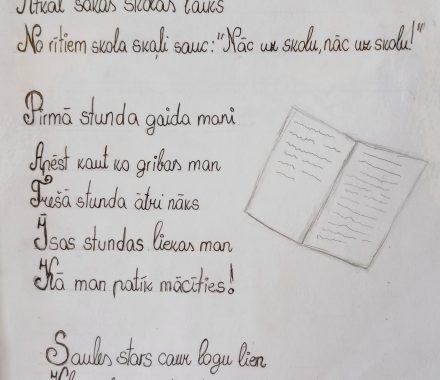 Atkal sākas skolas laiks
No rītiem skola skaļi sauc: "Nāc uz skolu, nāc uz skolu!"
Pirmā stunda gaida mani
Apēst kaut ko gribas man
Trešā stunda ātri nāks
Īsas stundas liekas man
Kā man patīk mācīties!
Saules stars caur logu lien